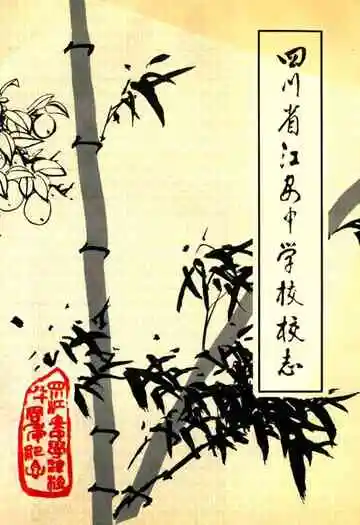 四川省江安中学校校志